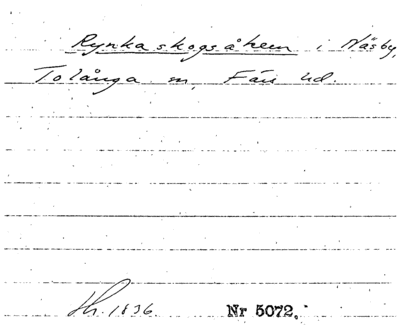 Rynkaskogsåhem i Näsby,
Tolånga sn, Färs hd.
Hh. 1836. Nr 5072.